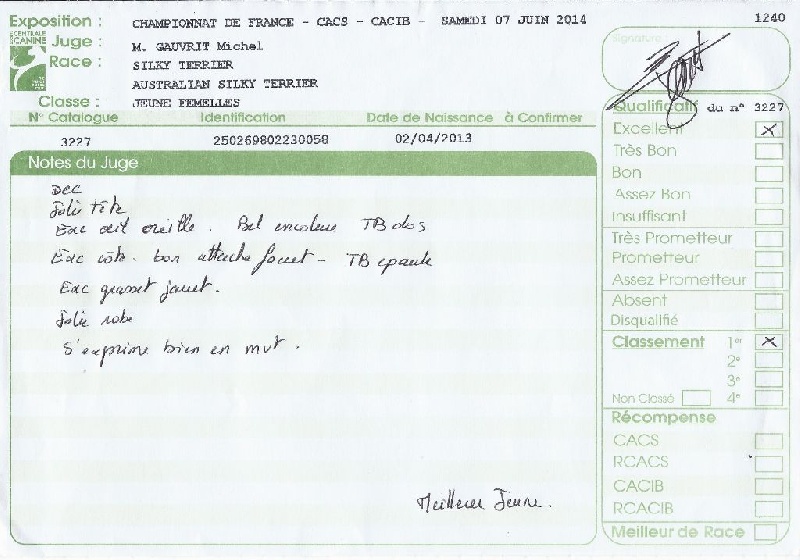 Exposition : CHAMPIONNAT DE FRANCE - CACS - CACIB - SAMEDI 07 JUIN 2014
1240
CENTRALE CANINE
Juge : M. GAUVRIT Michel
Race : SILKY TERRIER
AUSTRALIAN SILKY TERRIER
Classe : JEUNE FEMELLES
Signature
N° Catalogue Identification Date de Naissance à Confirmer
3227 250269802230058 02/04/2013
Notes du Juge
DCC
Jolie tête
Exc œil oreille. Bel encolure TB dos
Exc côte. bon attache fouet - TB épaule
Exc grasset jarret.
Jolie robe
S'exprime bien en mvt.
Meilleur Jeune.
Qualificatif du n° 3227
Excellent X
Très Bon
Bon
Assez Bon
Insuffisant
Très Prometteur
Prometteur
Assez Prometteur
Absent
Disqualifié
Classement 1er X
2e
3e
Non Classé 4e
Récompense
CACS
RCACS
CACIB
RCACIB
Meilleur de Race